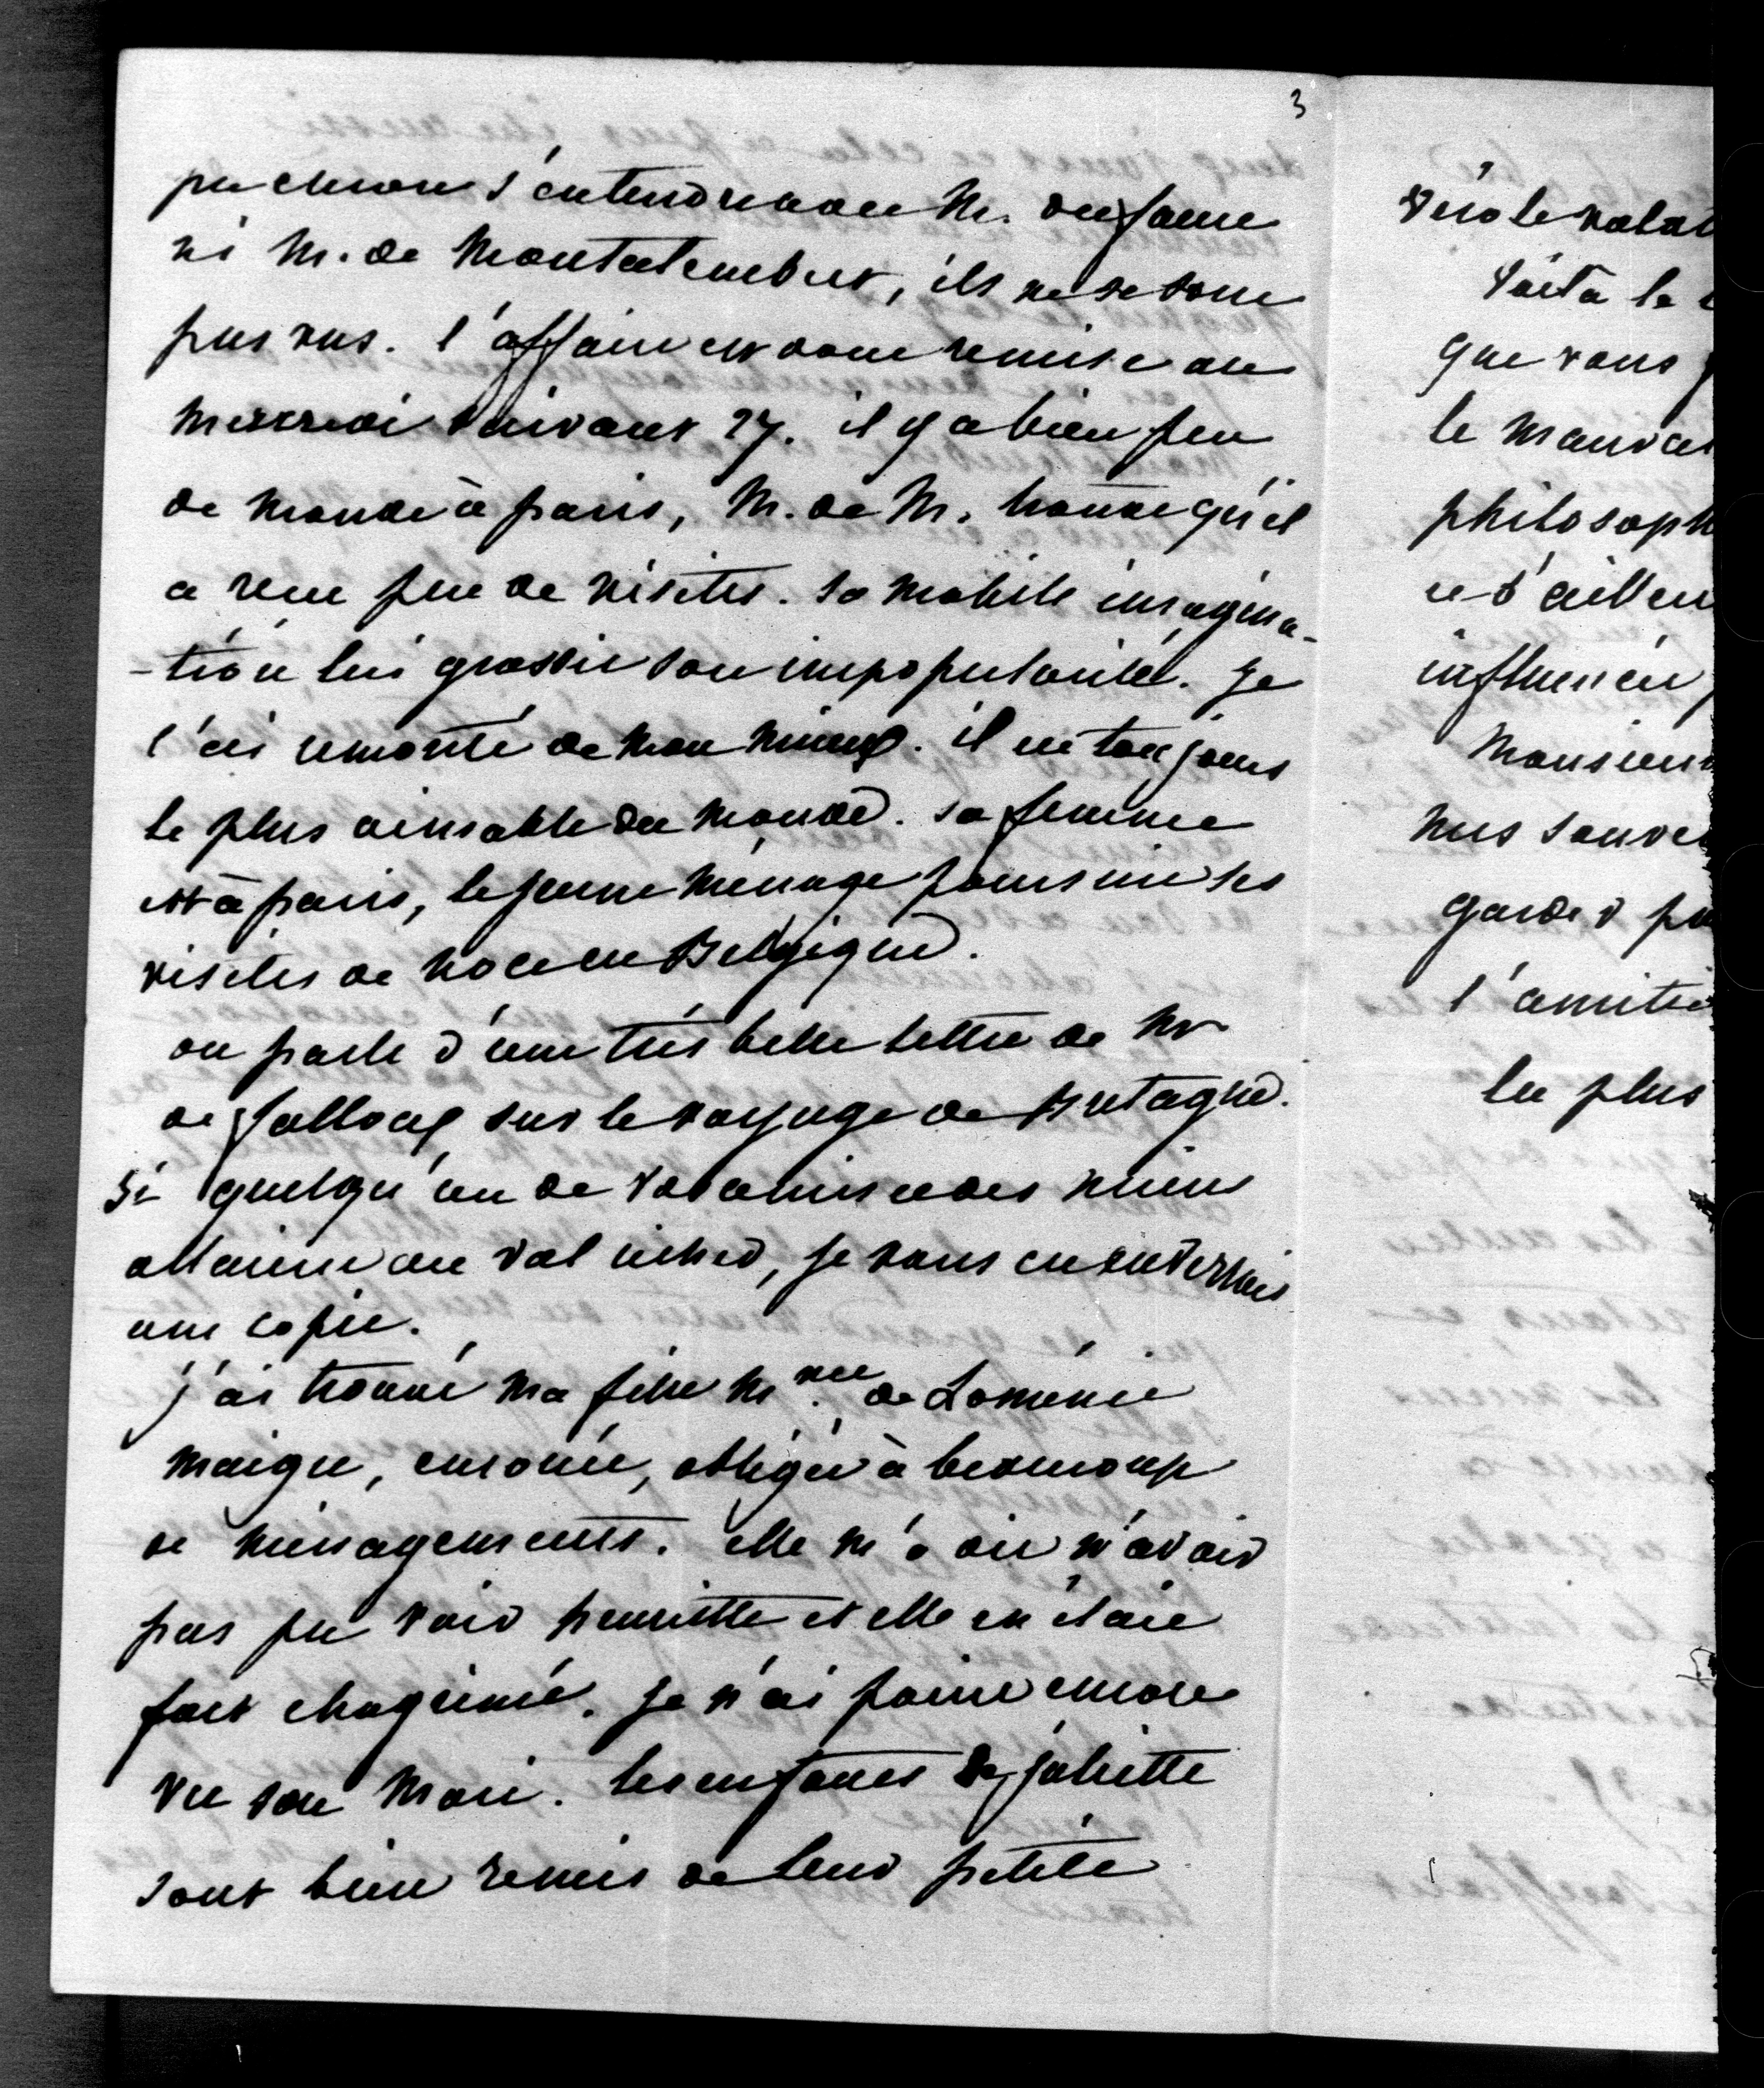 3
pu encore s'entendre avec M. dufaure
ni M. de Montalembert, ils ne se sont
pas vus. l'affaire est donc remise au
mercredi suivant 27. il y a bien peu
de monde à paris, M. de M. trouve qu'il
a reçu peu de visites. sa mobile imagina-
-tion lui grossit son impopularité. je
l'ai remonté de mon mieux. il est toujours
le plus aimable du monde. sa femme
est à paris, le jeune ménage poursuit ses
visites de noce en Belgique.
on parle d'une très belle lettre de Mr
de falloux sur le voyage de Bretagne.
Si quelqu'un de vos amis et des miens
allaient au val richer, je vous en enverrais
une copie.
j'ai trouvé ma fille Me. de Loménie
maigre, enrouée, obligée à beaucoup
de ménagements. elle m'a dit n'avoir
pas pu voir henriette et elle en était
fort chagrinée. je n'ai point encore
vu son mari. les enfants de juliette
sont bien remis de leur petite
vérole
Voilà la
que vous
le mauvai
philosoph
et d'ailleu
influencer
Monsieur
mes souve
garder
l'amitié
la plus